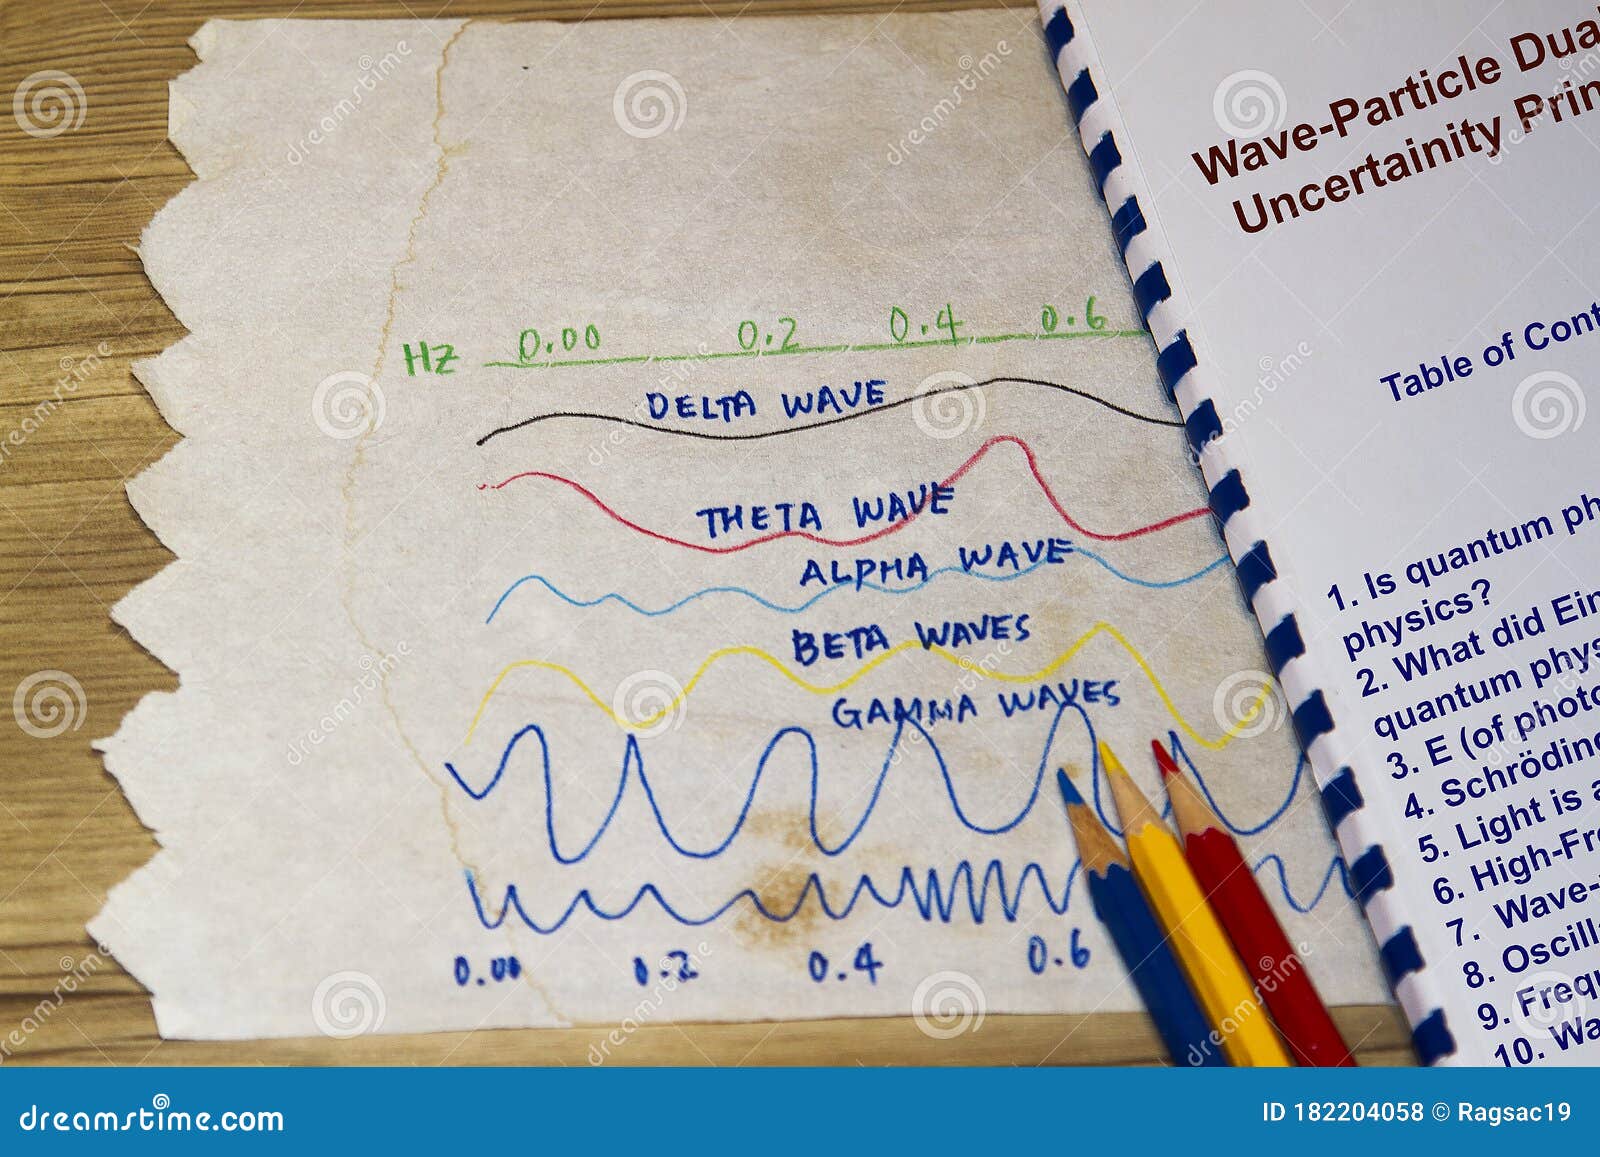 HZ 0.00 0.2 0.4 0.6
DELTA WAVE
THETA WAVE
ALPHA WAVE
BETA WAVES
GAMMA WAVES
0.00 0.2 0.4 0.6
Wave-Particle Dua
Uncertainity Prin
Table of Cont
1. Is quantum ph
physics?
2. What did Ein
quantum phys
3. E (of photo
4. Schröding
5. Light is a
6. High-Fre
7. Wave-
8. Oscilla
9. Frequ
10. Wa
dreamstime
dreamstime.com
ID 182204058 © Ragsac19